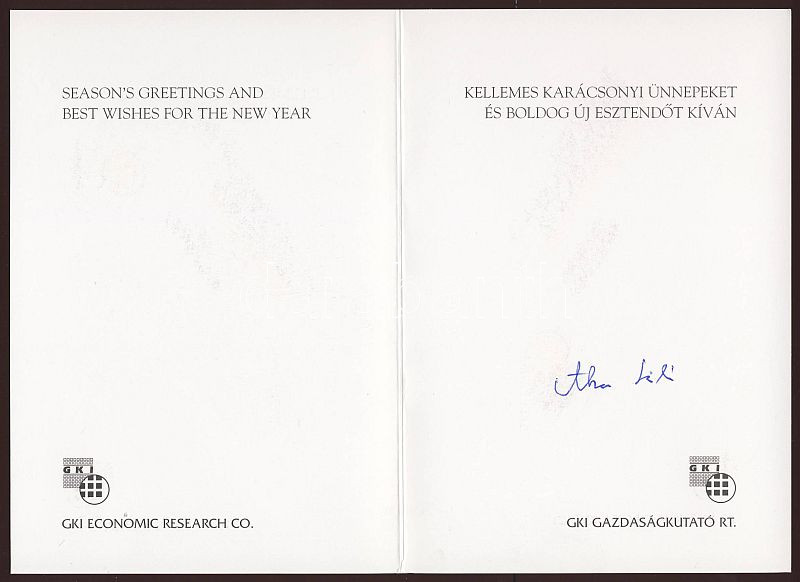 SEASON'S GREETINGS AND
BEST WISHES FOR THE NEW YEAR
GKI
GKI ECONOMIC RESEARCH CO.
KELLEMES KARÁCSONYI ÜNNEPEKET
ÉS BOLDOG ÚJ ESZTENDŐT KÍVÁN
GKI
GKI GAZDASÁGKUTATÓ RT.